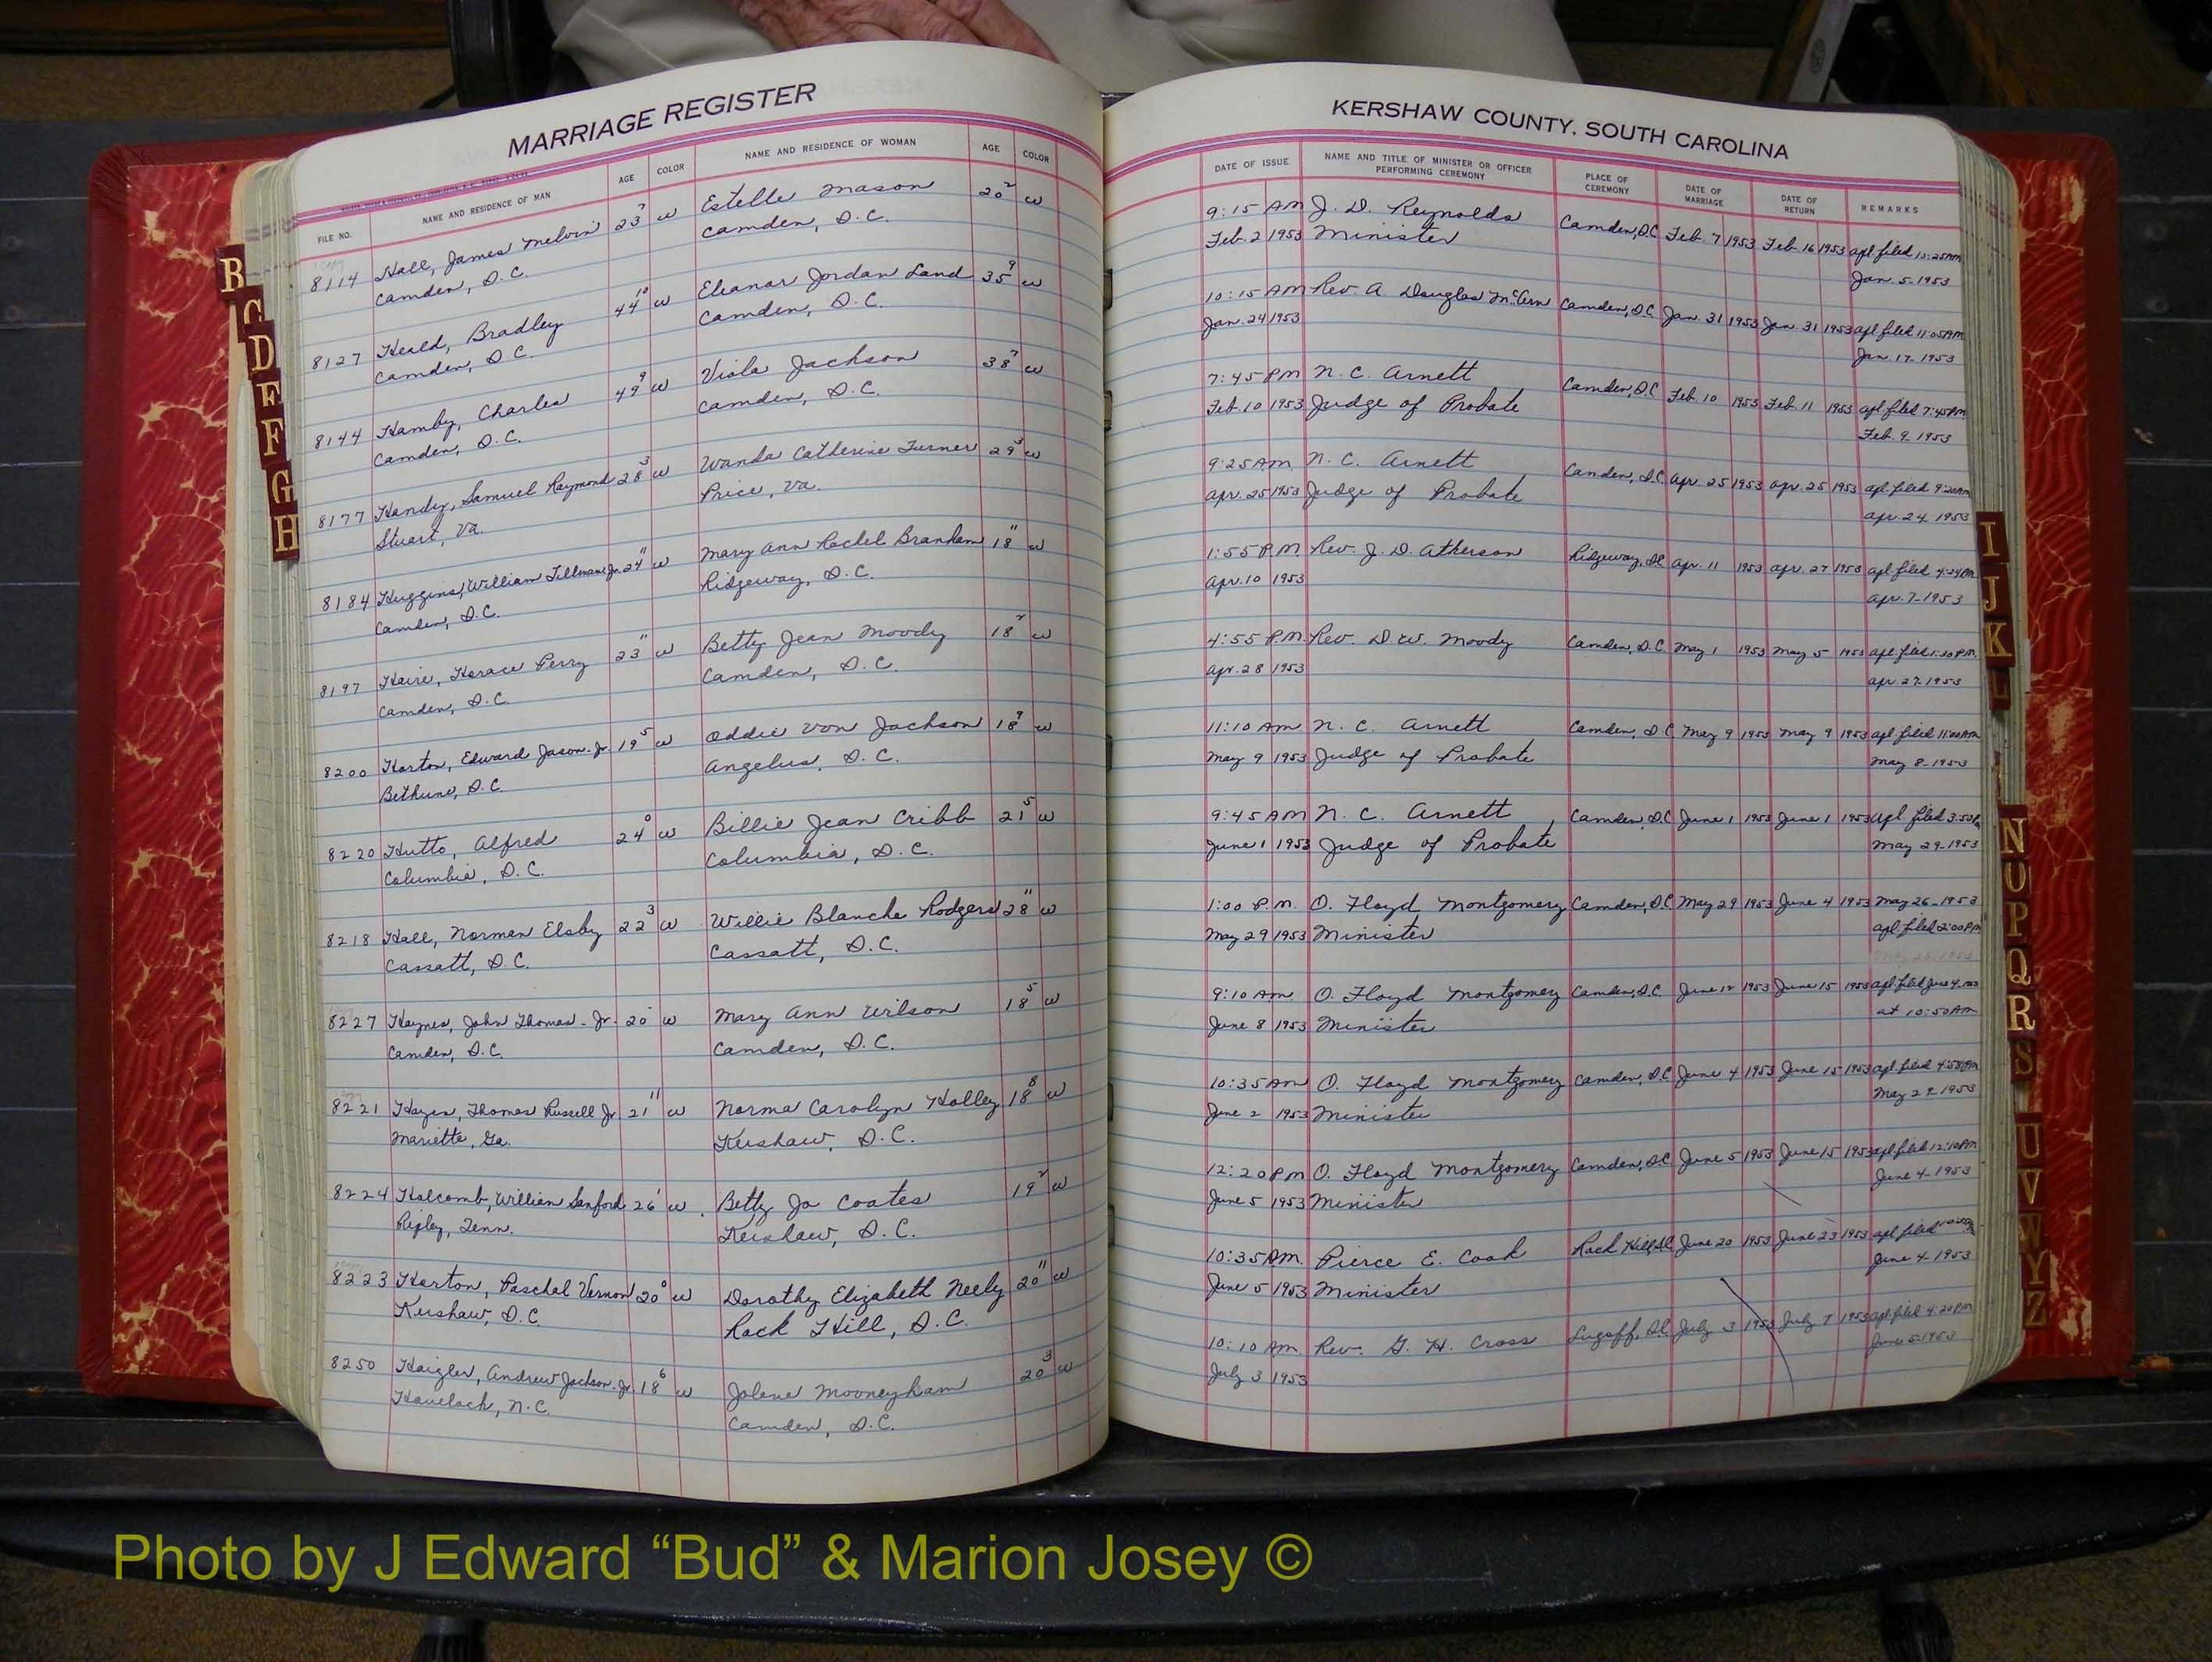 MARRIAGE REGISTER
FILE NO. NAME AND RESIDENCE OF MAN AGE COLOR NAME AND RESIDENCE OF WOMAN AGE COLOR
8114 Hall, James Melvin 23 7 w Estelle Mason 20 2 w
Camden, S.C. Camden, S.C.
8127 Heald, Bradley 44 10 w Eleanor Jordan Land 35 9 w
Camden, S.C. Camden, S.C.
8144 Hamby, Charles 49 9 w Viola Jackson 38 7 w
Camden, S.C. Camden, S.C.
8177 Handy, Samuel Raymond 28 3 w Wanda Catherine Turner 29 3 w
Stuart, Va. Price, Va.
8184 Huggins, William Tillman Jr. 24 11 w Mary Ann Rachel Branham 18 11 w
Camden, S.C. Ridgeway, S.C.
8197 Haire, Horace Perry 23 11 w Betty Jean Moody 18 2 w
Camden, S.C. Camden, S.C.
8200 Horton, Edward Jason Jr. 19 5 w Oddie Von Jackson 18 9 w
Bethune, S.C. Angelus, S.C.
8220 Hutto, Alfred 24 0 w Billie Jean Cribb 21 5 w
Columbia, S.C. Columbia, S.C.
8218 Hall, Norman Elsby 22 3 w Willie Blanche Rodgers 28 11 w
Cassatt, S.C. Cassatt, S.C.
8227 Haynes, John Thomas - Jr. 20 w Mary Ann Wilson 18 5 w
Camden, S.C. Camden, S.C.
8221 Hayes, Thomas Russell Jr. 21 11 w Norma Carolyn Holley 18 8 w
Mariette, Ga. Kershaw, S.C.
8224 Holcomb, William Sanford 26 1 w Betty Jo Coates 19 2 w
Ripley, Tenn. Kershaw, S.C.
8223 Horton, Paschal Vernon 20 0 w Dorothy Elizabeth Neely 20 11 w
Kershaw, S.C. Rock Hill, S.C.
8250 Haigler, Andrew Jackson Jr. 18 6 w Jolene Mooneyham 20 3 w
Havelock, N.C. Camden, S.C.
KERSHAW COUNTY, SOUTH CAROLINA
DATE OF ISSUE NAME AND TITLE OF MINISTER OR OFFICER PERFORMING CEREMONY PLACE OF CEREMONY DATE OF MARRIAGE DATE OF RETURN REMARKS
9:15 AM J. D. Reynolds Camden, S.C. Feb. 7 1953 Feb. 16 1953 apl. filed
Feb. 2 1953 Minister Jan. 5-1953
10:15 AM Rev. A Douglas Camden, S.C. Jan. 31 1953 Jan. 31 1953 apl. filed 11:05 AM
Jan. 24 1953 Jan. 17-1953
7:45 PM N. C. Arnett Camden, S.C. Feb. 10 1953 Feb. 11 1953 apl. filed 7:45 PM
Feb. 10 1953 Judge of Probate Feb. 9-1953
9:25 AM N. C. Arnett Camden, S.C. Apr. 25 1953 Apr. 25 1953 apl. filed 9:20 AM
Apr. 25 1953 Judge of Probate Apr. 24-1953
1:55 P.M. Rev. J. D. Atherson Ridgeway, SC Apr. 11 1953 Apr. 27 1953 apl. filed 4:24 PM
Apr. 10 1953 Apr. 7-1953
4:55 P.M. Rev. D. W. Moody Camden, S.C. May 1 1953 May 5 1953 apl. filed 1:30 PM
Apr. 28 1953 Apr. 27-1953
11:10 AM N. C. Arnett Camden, S.C. May 9 1953 May 9 1953 apl. filed 11:00 AM
May 9 1953 Judge of Probate May 8-1953
9:45 AM N. C. Arnett Camden, S.C. June 1 1953 June 1 1953 apl. filed 3:50
June 1 1953 Judge of Probate May 29-1953
1:00 P.M. O. Floyd Montgomery Camden, S.C. May 29 1953 June 4 1953 May 26-1953
May 29 1953 Minister apl. filed 2:00 PM
9:10 AM O. Floyd Montgomery Camden, S.C. June 12 1953 June 15 1953 apl. filed June 4
June 8 1953 Minister at 10:50 AM
10:35 AM O. Floyd Montgomery Camden, S.C. June 4 1953 June 15 1953 apl. filed
June 2 1953 Minister May 29-1953
12:20 PM O. Floyd Montgomery Camden, S.C. June 5 1953 June 15 1953 apl. filed 12:10 PM
June 5 1953 Minister June 4-1953
10:35 AM. Pierce E. Cook Rock Hill, SC June 20 1953 June 23 1953 apl. filed
June 5 1953 Minister June 4-1953
10:10 AM. Rev. G. H. Cross Lugoff, S.C. July 3 1953 July 7 1953 apl. filed 4:20 PM
July 3 1953 June 5-1953
B
C
D
E
F
G
H
I
J
K
L
N
O
P
Q
R
S
U
V
W
Y
Z
Photo by J Edward “Bud” & Marion Josey ©